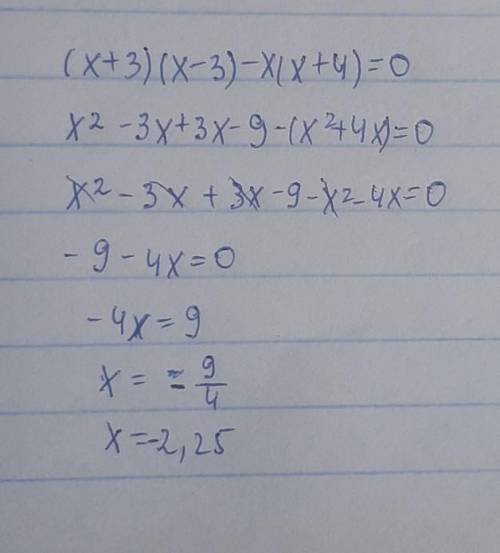 (x+3)(x-3)-x(x+4)=0
x²-3x+3x-9-(x²+4x)=0
x²-3x+3x-9-x²-4x=0
-9-4x=0
-4x=9
x=-9/4
x=-2,25